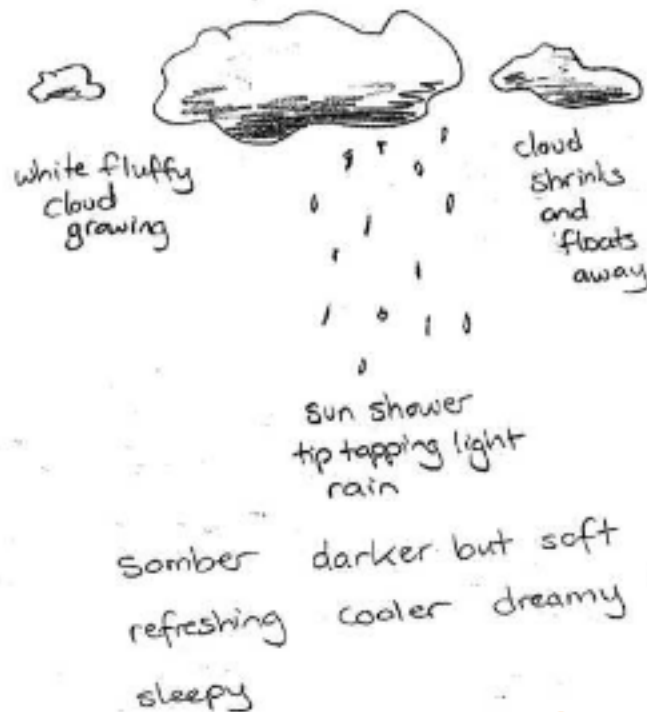 white fluffy
cloud
growing
cloud
shrinks
and
floats
away
sun shower
tip tapping light
rain
somber darker but soft
refreshing cooler dreamy
sleepy